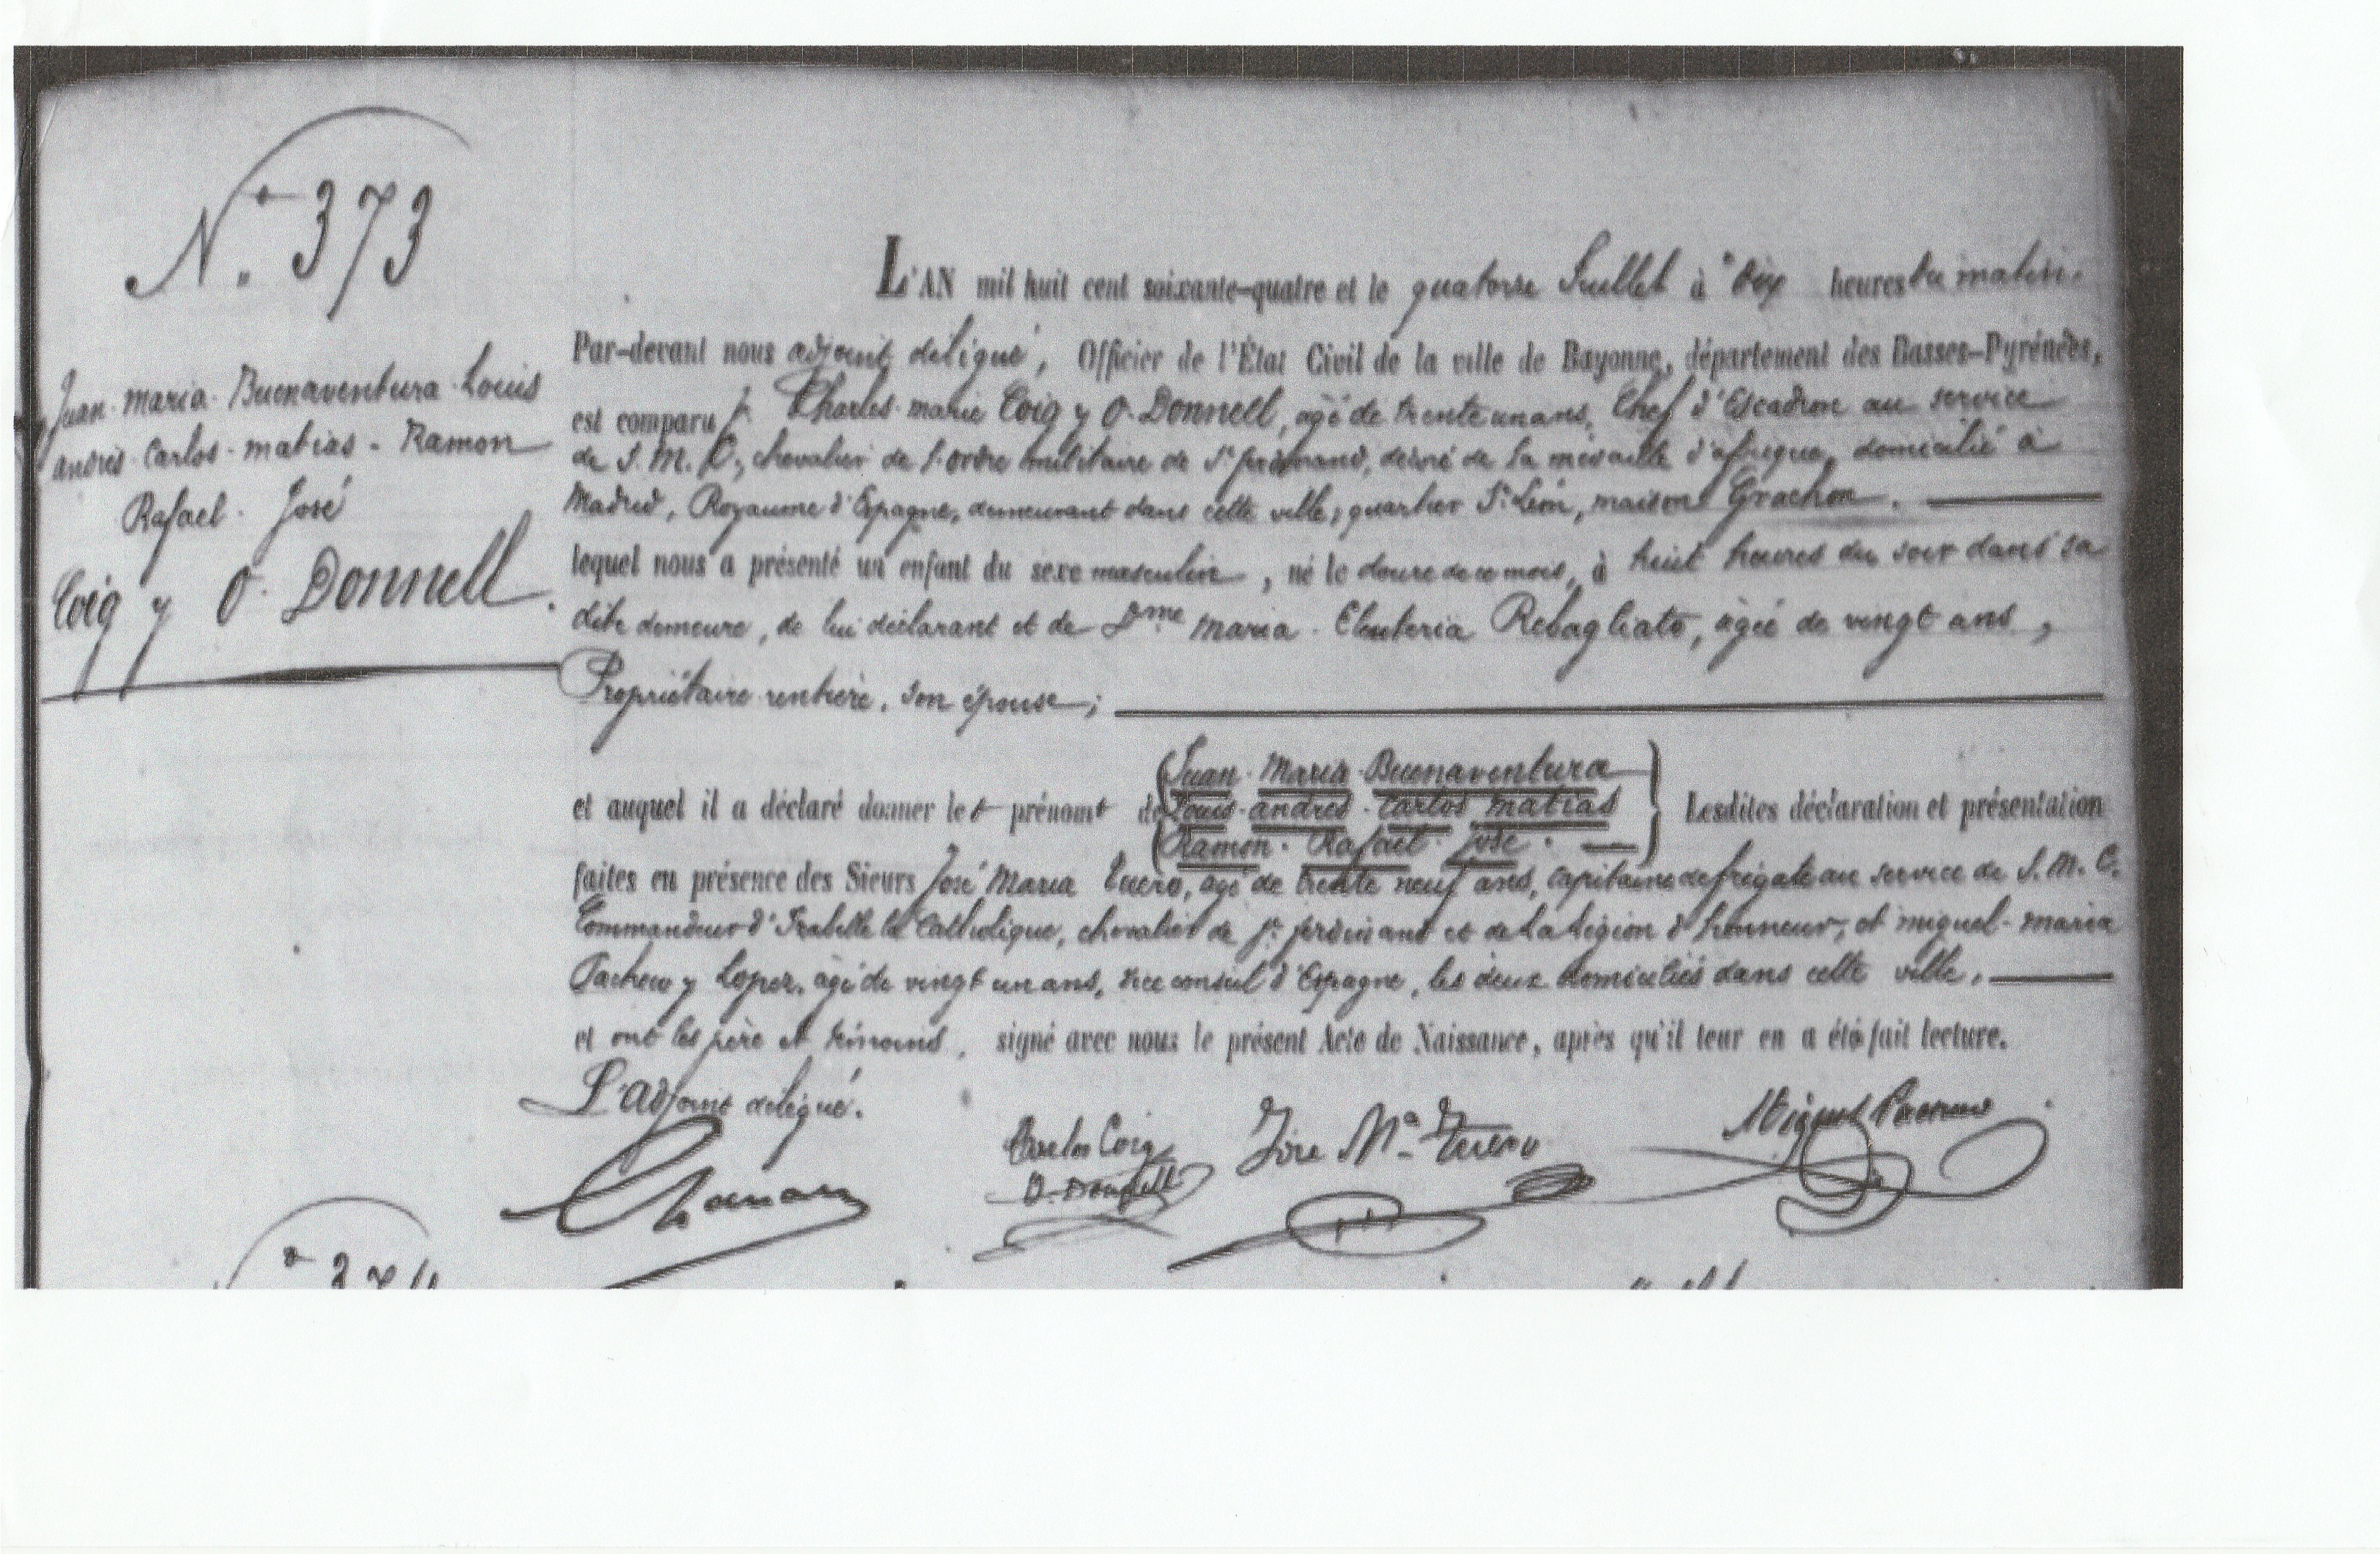 N.º 373
Juan-Maria-Buenaventura-Louis
andres-Carlos-matias-Ramon
Rafael-José
Coig y O-Donnell.
L'AN mil huit cent soixante-quatre et le quatorze Juillet à Dix heures du matin.
Par-devant nous adjoint délégué, Officier de l'État Civil de la ville de Bayonne, département des Basses-Pyrénées,
est comparu Charles-marie Coig y O-Donnell, agé de trente un ans, Chef d'Escadron au service
de S. M. C., chevalier de l'ordre militaire de St ferdinand, décoré de la médaille d'afrique, domicilié à
Madrid, Royaume d'Espagne, demeurant dans cette ville, quartier St Léon, maison Grachon.
lequel nous a présenté un enfant du sexe masculin, né le douze de ce mois, à huit heures du soir dans sa
dite demeure, de lui déclarant et de Dme Maria-Eleuteria Rebagliato, âgée de vingt ans,
Propriétaire rentière, son épouse;
et auquel il a déclaré donner les prénoms de Juan-Maria-Buenaventura
Louis-andres-Carlos matias
Ramon-Rafael-José. Lesdites déclaration et présentation
faites en présence des Sieurs José Maria Tuero, agé de trente neuf ans, Capitaine de frégate au service de S. M. C.
Commandeur d'Isabelle la Catholique, chevalier de St ferdinand et de la Légion d'honneur, et miguel-maria
Pacheco y Lopez, agé de vingt un ans, vice consul d'Espagne, les deux domiciliés dans cette ville.
et ont les père et témoins, signé avec nous le présent Acte de Naissance, après qu'il leur en a été fait lecture.
L'adjoint délégué.
Carlos Coig
O-Donnell
Jose Mª Tuero
Miguel Pacheco